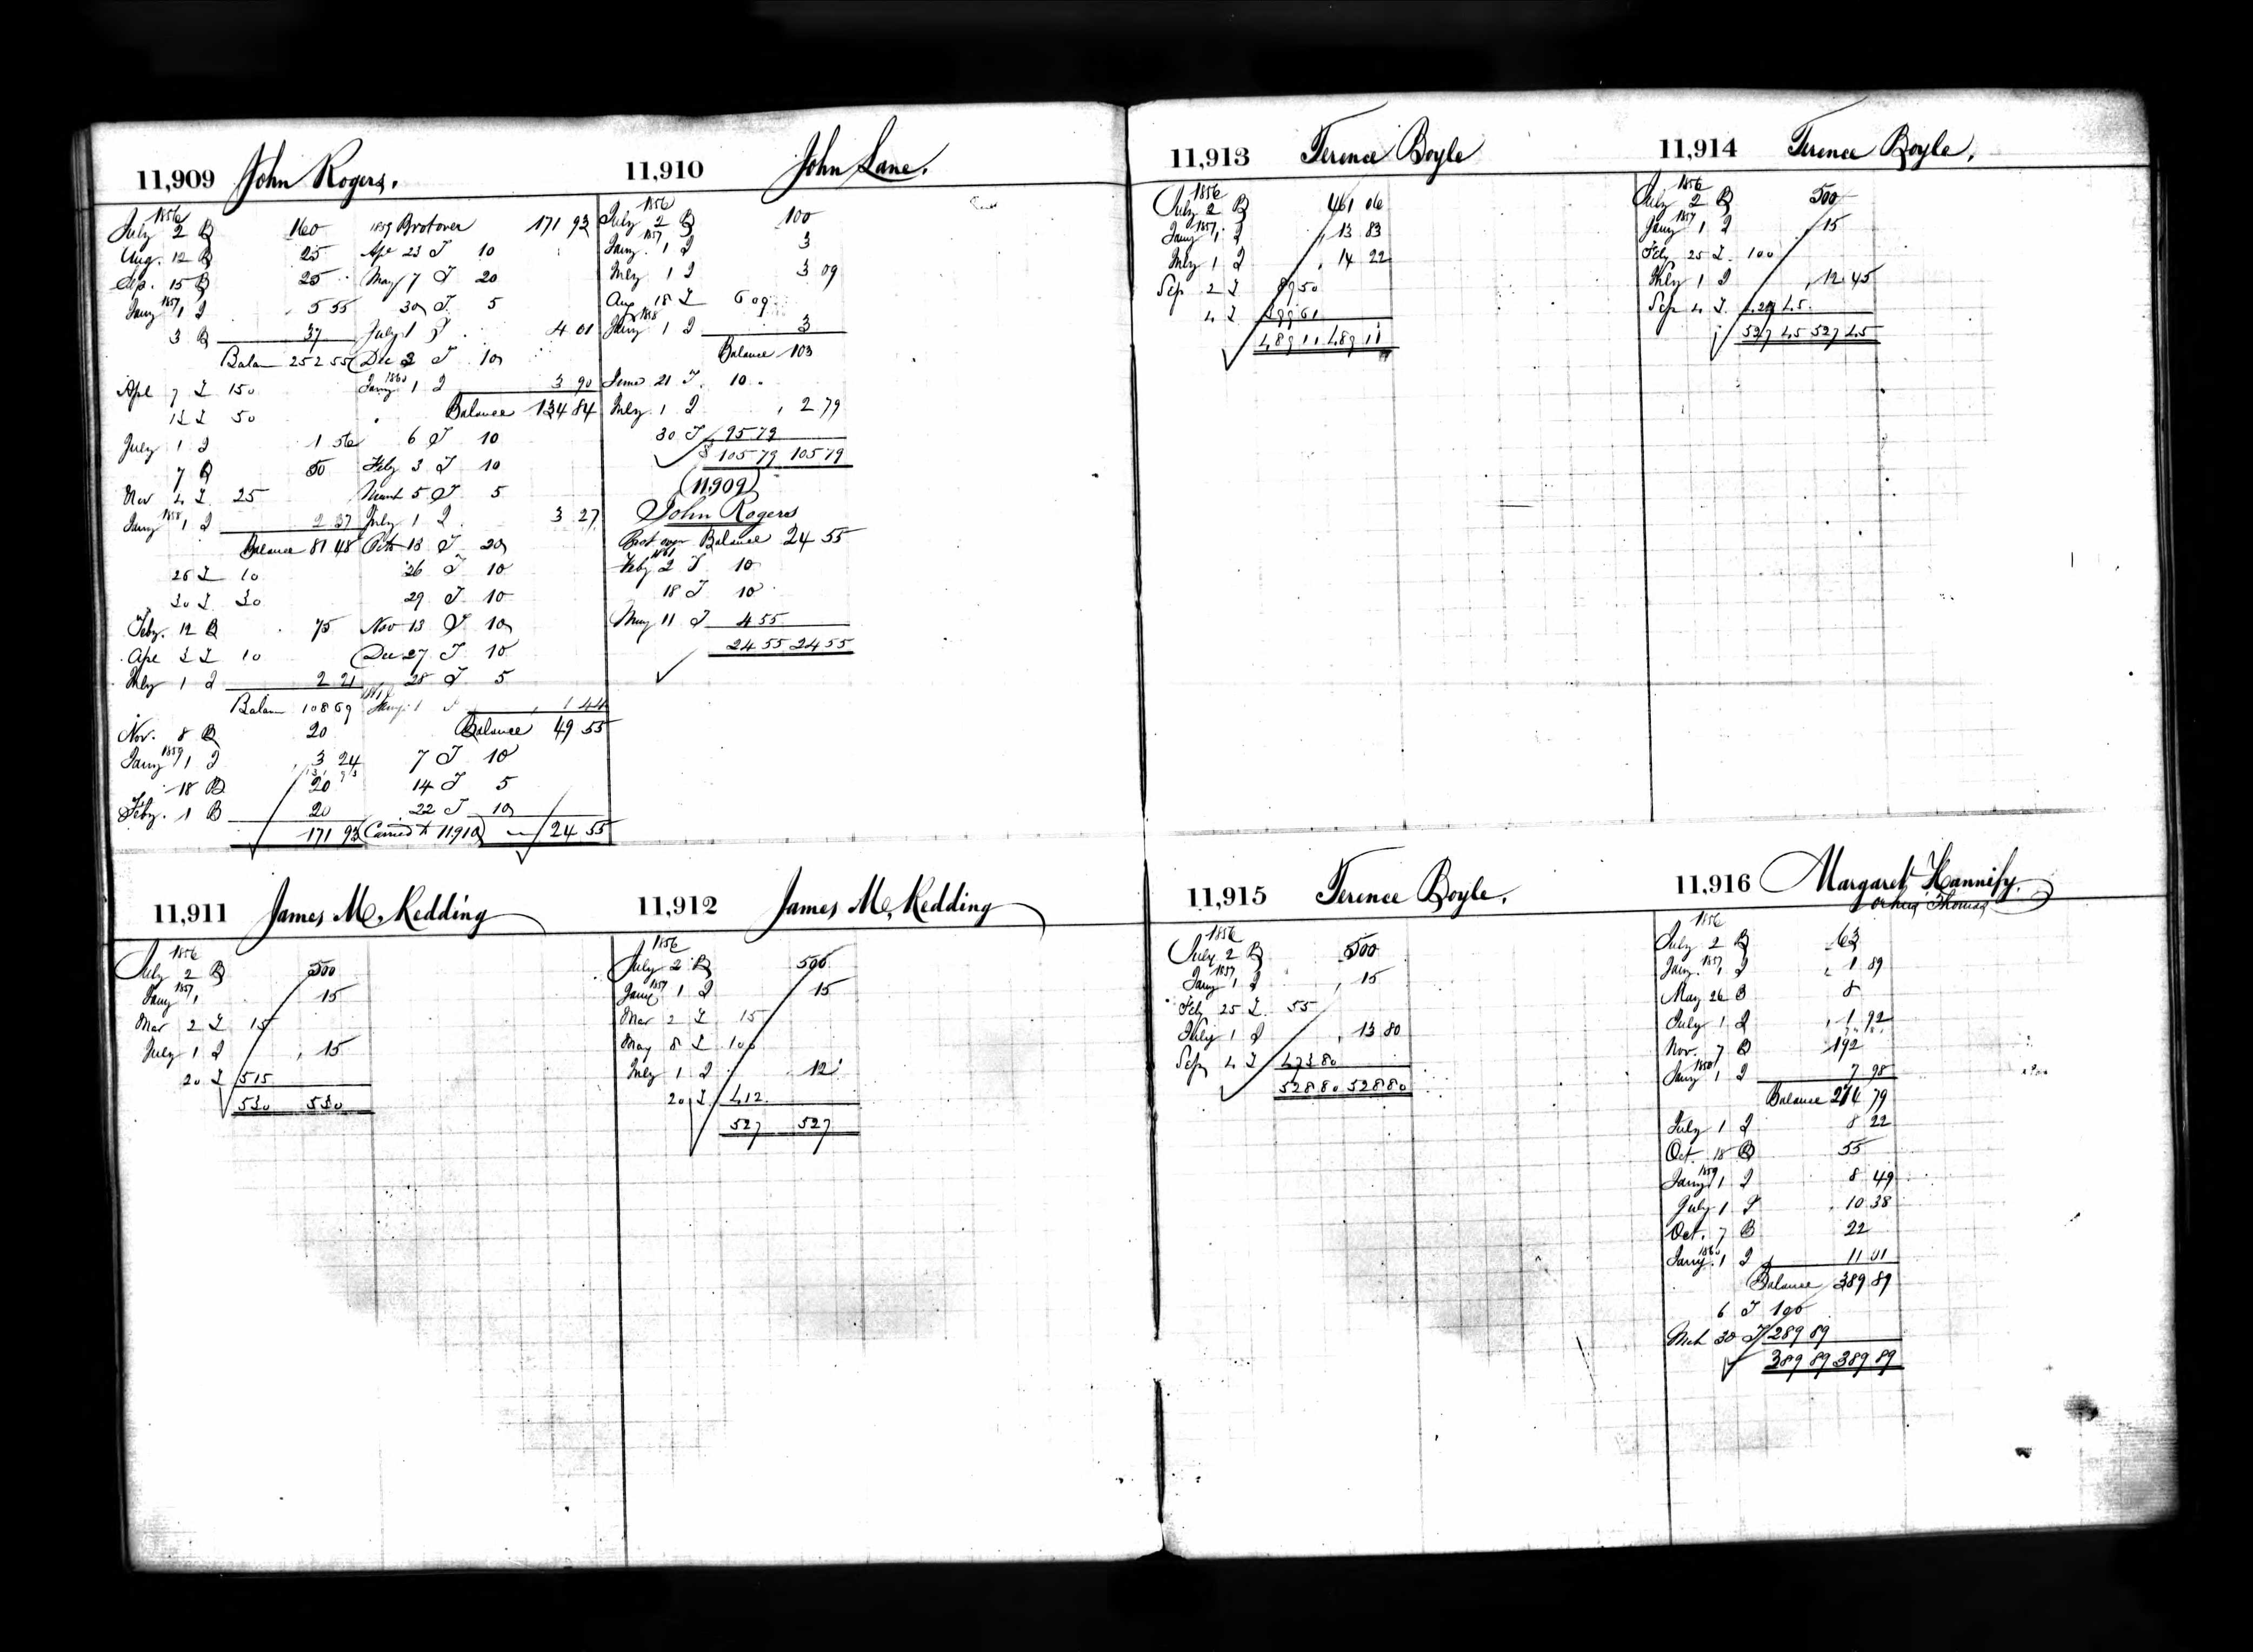 11,909 John Rogers.
1856
July 2 B 160
Aug. 12 B 25
Sep. 15 B 25
1857
Jany 1 I 5 55
3 B 37
Balan 252 55
Apl 7 I 150
13 I 50
July 1 I 1 56
7 B 50
Nov 4 I 25
1858
Jany 1 I 2 37
Balance 81 48
26 I 10
30 I 30
Feby. 12 B 75
Ape 3 I 10
July 1 I 2 21
Balan 108 69
Nov. 8 B 20
1859
Jany 1 I 3 24
18 B 20
Feby. 1 B 20
171 93
1859 Brot over 171 93
Ape 23 I 10
May 7 I 20
30 I 5
July 1 I 4 01
Dec 2 I 10
1860
Jany 1 I 3 90
Balance 134 84
6 I 10
Feby 3 I 10
March 5 I 5
July 1 I 3 27
Oct 13 I 20
26 I 10
29 I 10
Nov 13 I 10
Dec 27 I 10
28 I 5
1861
Jany 1 I 1 44
Balance 49 55
7 I 10
14 I 5
22 I 10
Carried to 11.910 24 55
11,910 John Lane.
1856
July 2 B 100
1857
Jany 1 I 3
July 1 I 3 09
Aug 18 I 6 09
1858
Jany 1 I 3
Balance 103
June 21 I 10
July 1 I 2 79
30 I 95 79
$ 105 79 105 79
(11.909)
John Rogers
Brot over Balance 24 55
1861
Feby 2 I 10
18 I 10
May 11 I 4 55
24 55 24 55
11,911 James Mc Kedding
1856
July 2 B 500
1857
Jany 1 15
Mar 2 I 15
July 1 I 15
20 I 515
530 530
11,912 James Mc Kedding
1856
July 2 B 500
1857
Jany 1 I 15
Mar 2 I 15
May 8 I 100
July 1 I 12
20 I 412
527 527
11,913 Terence Boyle
1856
July 2 B 461 06
1857
Jany 1 I 13 83
July 1 I 14 22
Sep 2 I 89 50
4 I 399 61
489 11 489 11
11,914 Terence Boyle.
1856
July 2 B 500
1857
Jany 1 I 15
Feby 25 I 100
July 1 I 12 45
Sep 4 I 427 45
527 45 527 45
11,915 Terence Boyle.
1856
July 2 B 500
1857
Jany 1 I 15
Feb 25 I 55
July 1 I 13 80
Sep 4 I 473 80
528 80 528 80
11,916 Margaret Hannify.
or husb Thomas
1856
July 2 B 63
1857
Jany 1 I 1 89
May 26 B 8
July 1 I 1 92
Nov. 7 B 192
1858
Jany 1 I 7 98
Balance 274 79
July 1 I 8 22
Oct. 18 B 55
1859
Jany 1 I 8 49
July 1 I 10 38
Oct. 7 B 22
1860
Jany. 1 I 11 01
Balance 389 89
6 I 100
Mch 30 I 289 89
389 89 389 89